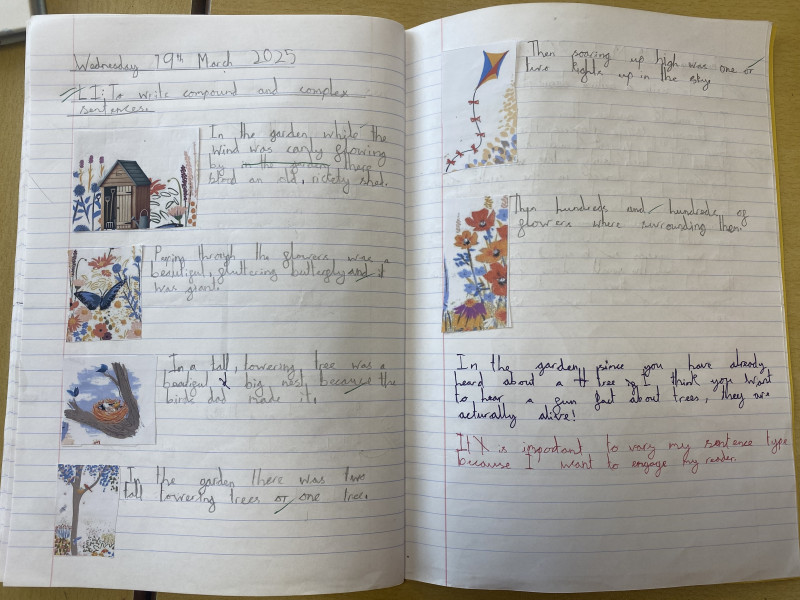 Wednesday 19th March 2025
LI: To write compound and complex
sentences.
In the garden while the
wind was carely flowing
by in the garden there
stood an old, rickety shed.
Peering through the flowers was a
beautiful, fluttering butterfly and it
was giant.
In a tall, towering tree was a
beautiful big nest because the
birds dad made it.
In the garden there was two
tall towering trees or one tree.
Then soaring up high was one or
two kights up in the sky
Then hundreds and hundreds of
flowers where surrounding them.
In the garden, since you have already
heard about a tree I think you want
to hear a fun fact about trees, they are
acturally alive!
It is important to vary my sentence type
because I want to engage my reader.